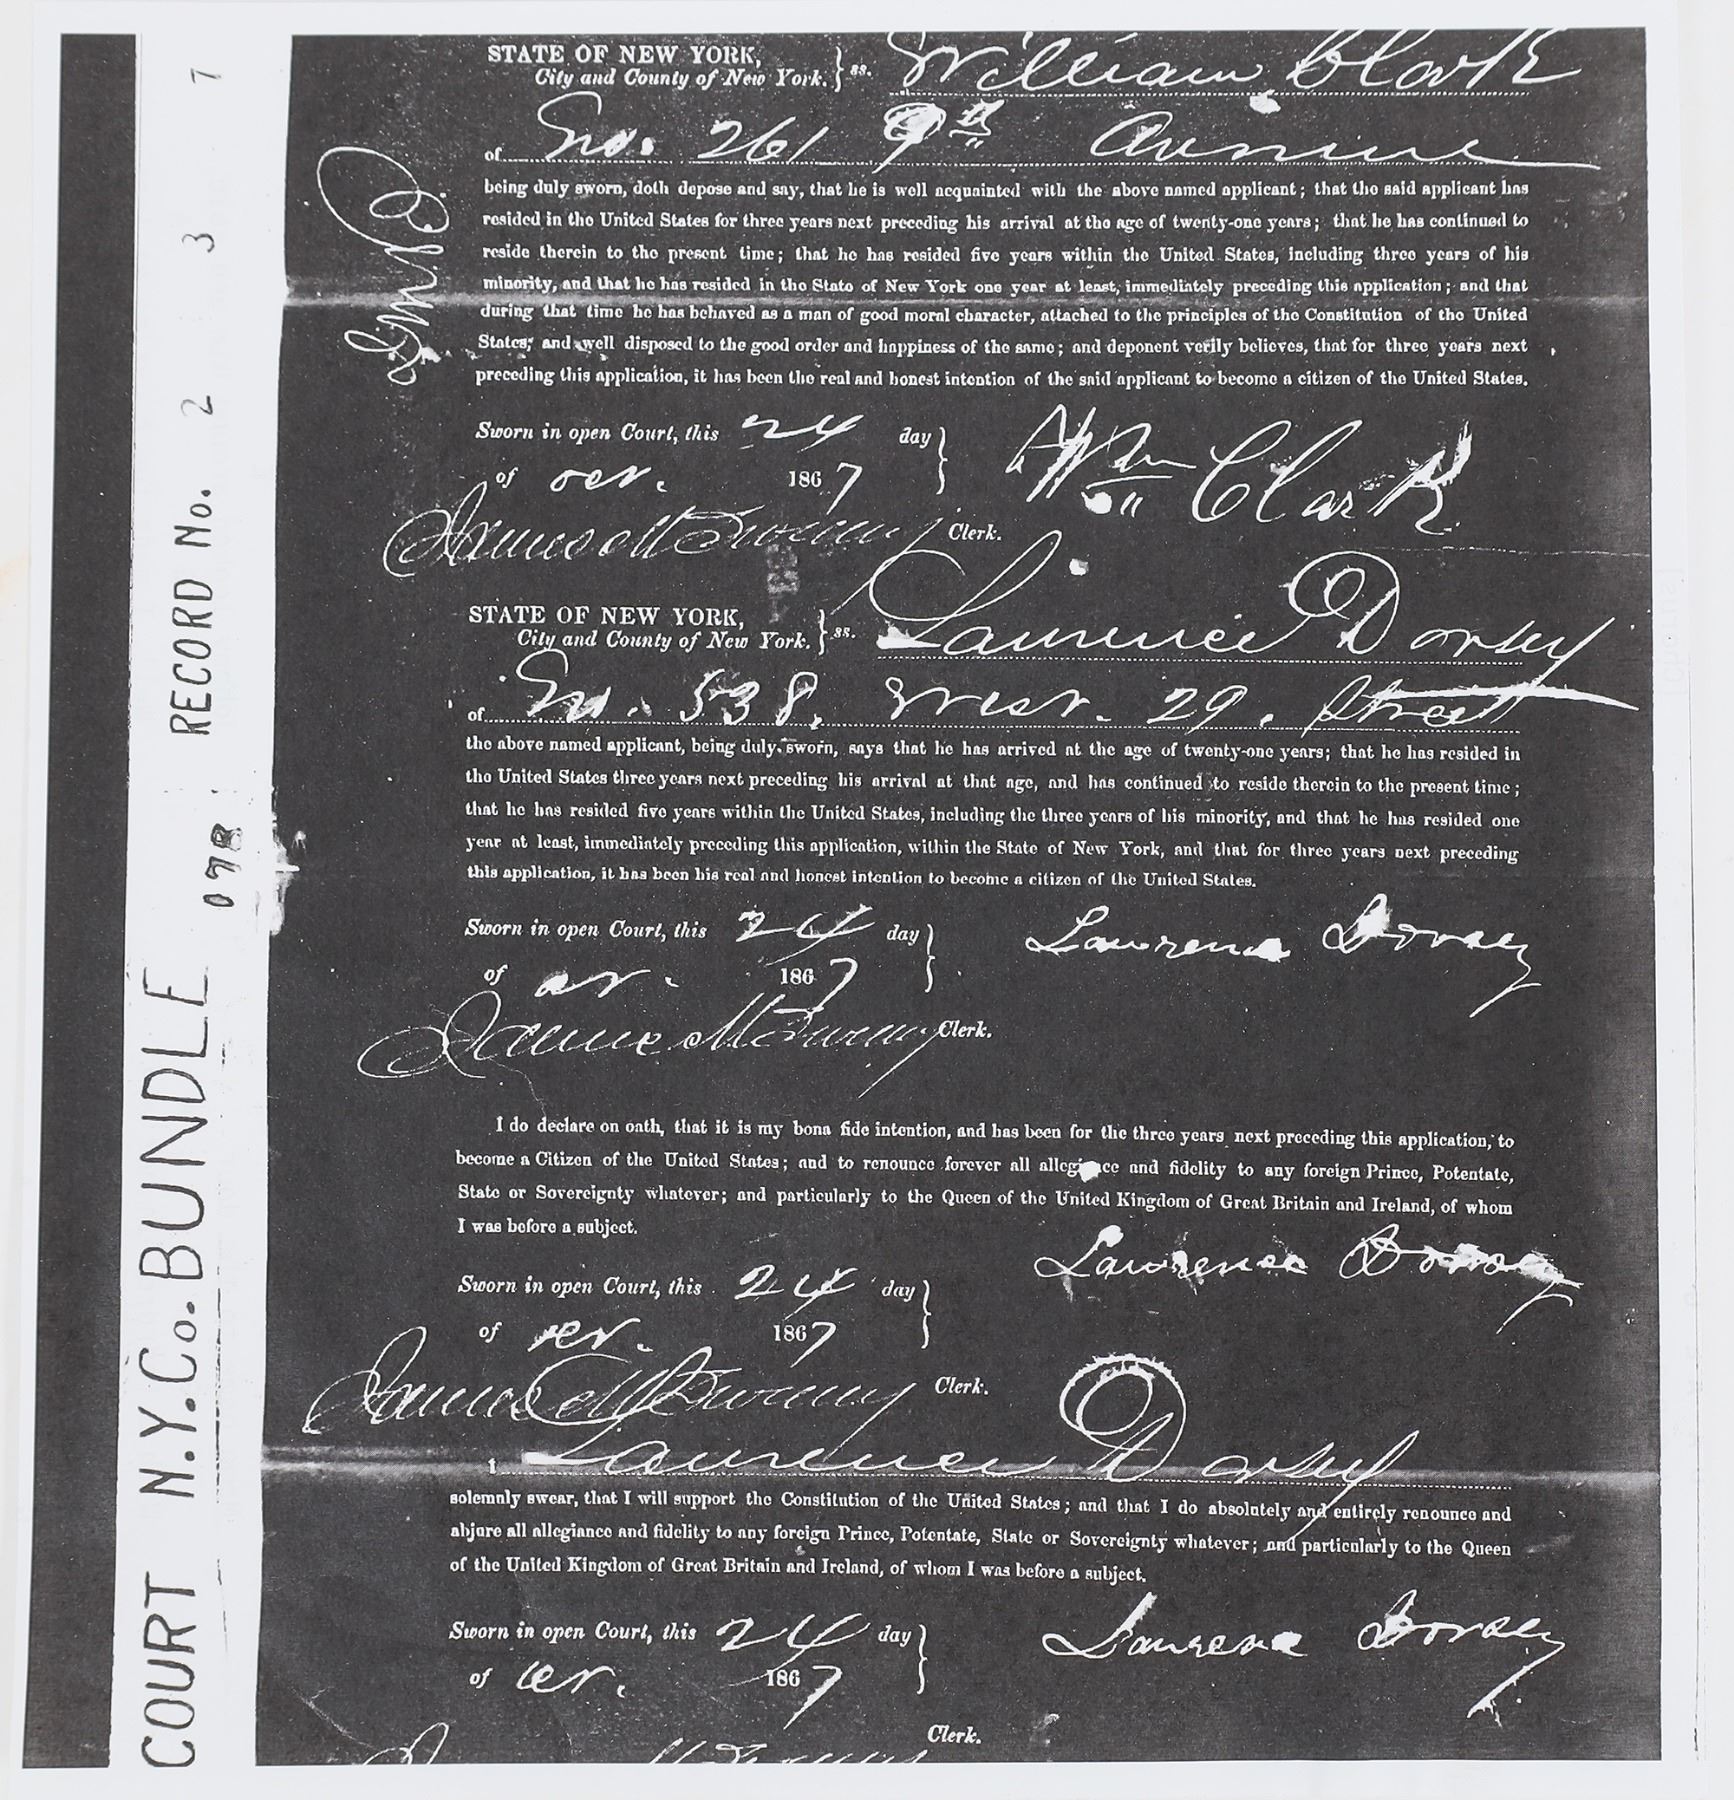 STATE OF NEW YORK,
City and County of New York. } ss. William Clark
of No. 261 9th Avenue
being duly sworn, doth depose and say, that he is well acquainted with the above named applicant; that the said applicant has
resided in the United States for three years next preceding his arrival at the age of twenty-one years; that he has continued to
reside therein to the present time; that he has resided five years within the United States, including three years of his
minority, and that he has resided in the State of New York one year at least, immediately preceding this application; and that
during that time he has behaved as a man of good moral character, attached to the principles of the Constitution of the United
States; and well disposed to the good order and happiness of the same; and deponent verily believes, that for three years next
preceding this application, it has been the real and honest intention of the said applicant to become a citizen of the United States.
Sworn in open Court, this 24 day } Wm Clark
of Oct. 1867
Clerk.
STATE OF NEW YORK,
City and County of New York. } ss. Laurence Dorsey
of No. 538, West. 29. Street
the above named applicant, being duly sworn, says that he has arrived at the age of twenty-one years; that he has resided in
the United States three years next preceding his arrival at that age, and has continued to reside therein to the present time;
that he has resided five years within the United States, including the three years of his minority, and that he has resided one
year at least, immediately preceding this application, within the State of New York, and that for three years next preceding
this application, it has been his real and honest intention to become a citizen of the United States.
Sworn in open Court, this 24 day } Lawrence Dorsey
of Oct. 1867
Clerk.
I do declare on oath, that it is my bona fide intention, and has been for the three years next preceding this application, to
become a Citizen of the United States; and to renounce forever all allegiance and fidelity to any foreign Prince, Potentate,
State or Sovereignty whatever; and particularly to the Queen of the United Kingdom of Great Britain and Ireland, of whom
I was before a subject.
Lawrence Dorsey
Sworn in open Court, this 24 day }
of Oct. 1867
Clerk.
I, Laurence Dorsey
solemnly swear, that I will support the Constitution of the United States; and that I do absolutely and entirely renounce and
abjure all allegiance and fidelity to any foreign Prince, Potentate, State or Sovereignty whatever; and particularly to the Queen
of the United Kingdom of Great Britain and Ireland, of whom I was before a subject.
Sworn in open Court, this 24 day } Lawrence Dorsey
of Oct. 1867
Clerk.
COURT N.Y.Co. BUNDLE 078 RECORD No. 2 3 7